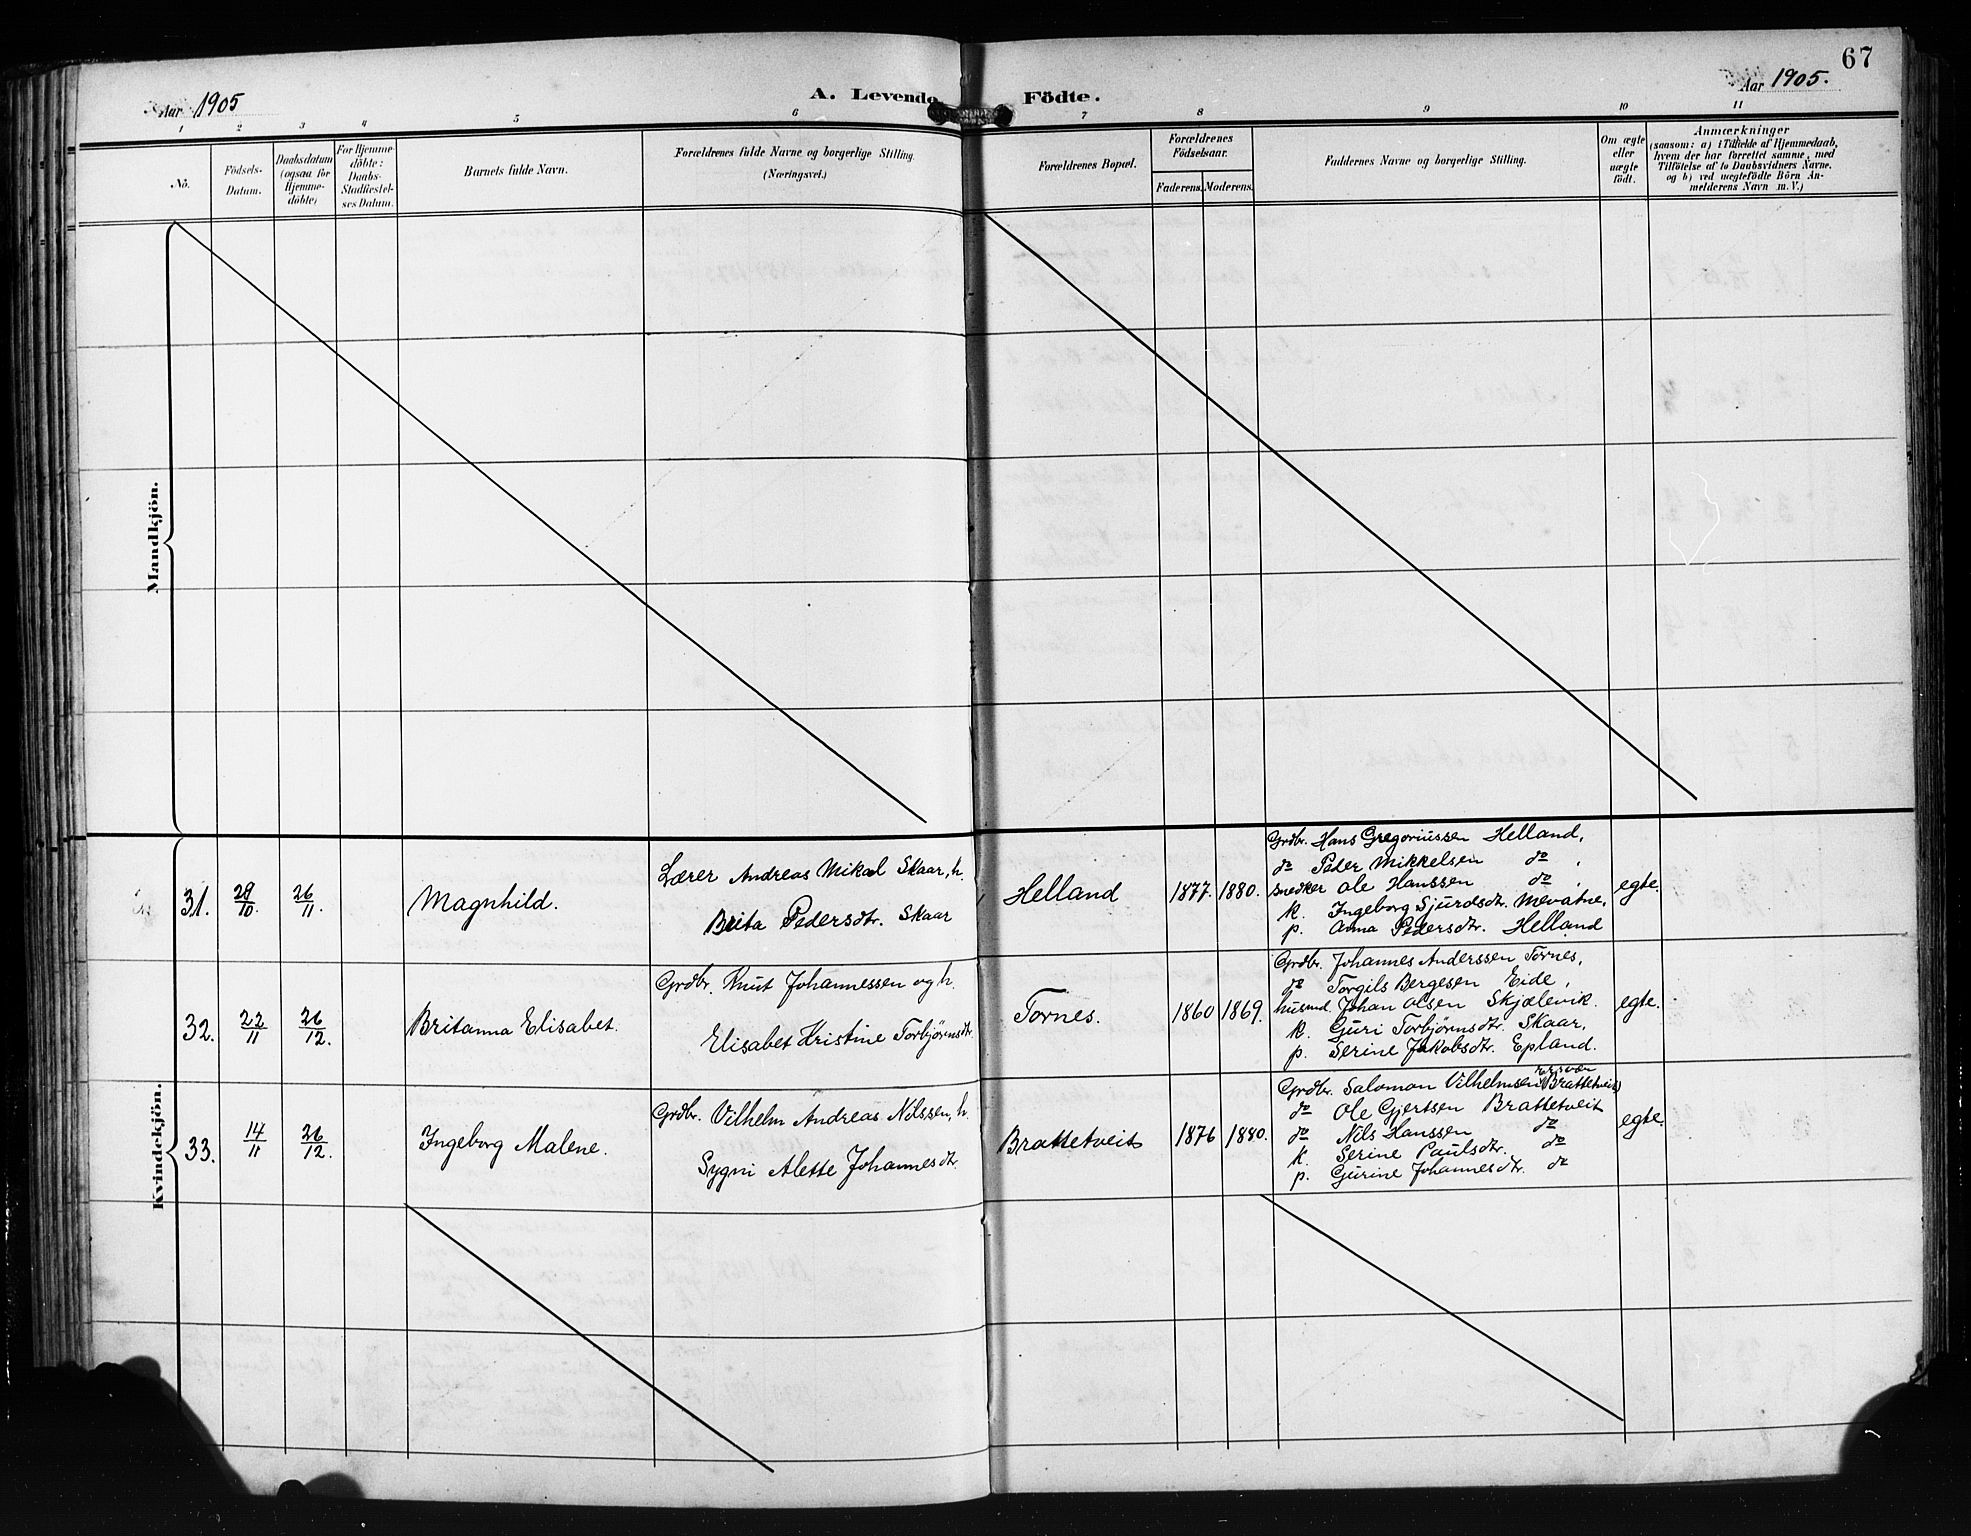 67
Aar 1905
A. Levende
Födte.
Aar 1905.
1 2 3 4 5 6 7 8 9 10 11
No.
Födsels-
Datum.
Daabsdatum
(ogsaa for
Hjemme-
döbte)
For Hjemme-
döbte:
Daabs-
Stadfæstel-
ses Datum.
Barnets fulde Navn.
Forældrenes fulde Navne og borgerlige Stilling.
(Næringsvei.)
Forældrenes Bopæl.
Forældrenes
Födselsaar.
Faderens. Moderens.
Faddernes Navne og borgerlige Stilling.
Om ægte
eller
uægte
födt.
Anmærkninger
(saasom: a) i Tilfælde af Hjemmedaab,
hvem der har forrettet samme, med
Tilföielse af to Daabsvidners Navne,
og b) ved uægtefödte Börn An-
melderens Navn m. V.)
Mandkjön.
Kvindekjön.
31. 28/10. 26/11.
Magnhild.
Lærer Andreas Mikal Skaar, h.
Brita Pedersdtr. Skaar
Helland
1877. 1880.
Grdbr. Hans Gregoriussen Helland,
do Peder Mikkelsen do,
Snedker Ole Hanssen do,
k. Ingeborg Sjurdsdtr. Mevatne,
p. Anna Pedersdtr. Helland
egte.
32. 22/11 26/12.
Britanna Elisabet.
Grdbr. Knut Johannessen og h.
Elisabet Kristine Torbjørnsdtr.
Tornes.
1860 1869.
Grdbr. Johannes Anderssen Tornes,
do Torgils Bergesen Eide,
husmd. Johan Olsen Skjælevik.
k. Guri Torbjørnsdtr. Skaar,
p. Serine Jakobsdtr. Epland.
egte.
33. 14/11 26/12.
Ingeborg Malene.
Grdbr. Vilhelm Andreas Nilssen, h.
Sygni Alette Johannesdtr.
Brattetveit
1876 1880.
Grdbr. Salomon Vilhelmsen (Brattetveit)
do Ole Gjertsen Brattetveit
do Nils Hanssen do
k. Serine Paulsdtr. do
p. Gurine Johannesdtr. do
egte.